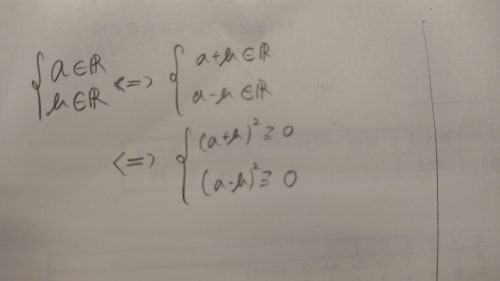 { a∈ℝ
b∈ℝ <=> { a+b∈ℝ
a-b∈ℝ
<=> { (a+b)² ≥ 0
(a-b)² ≥ 0